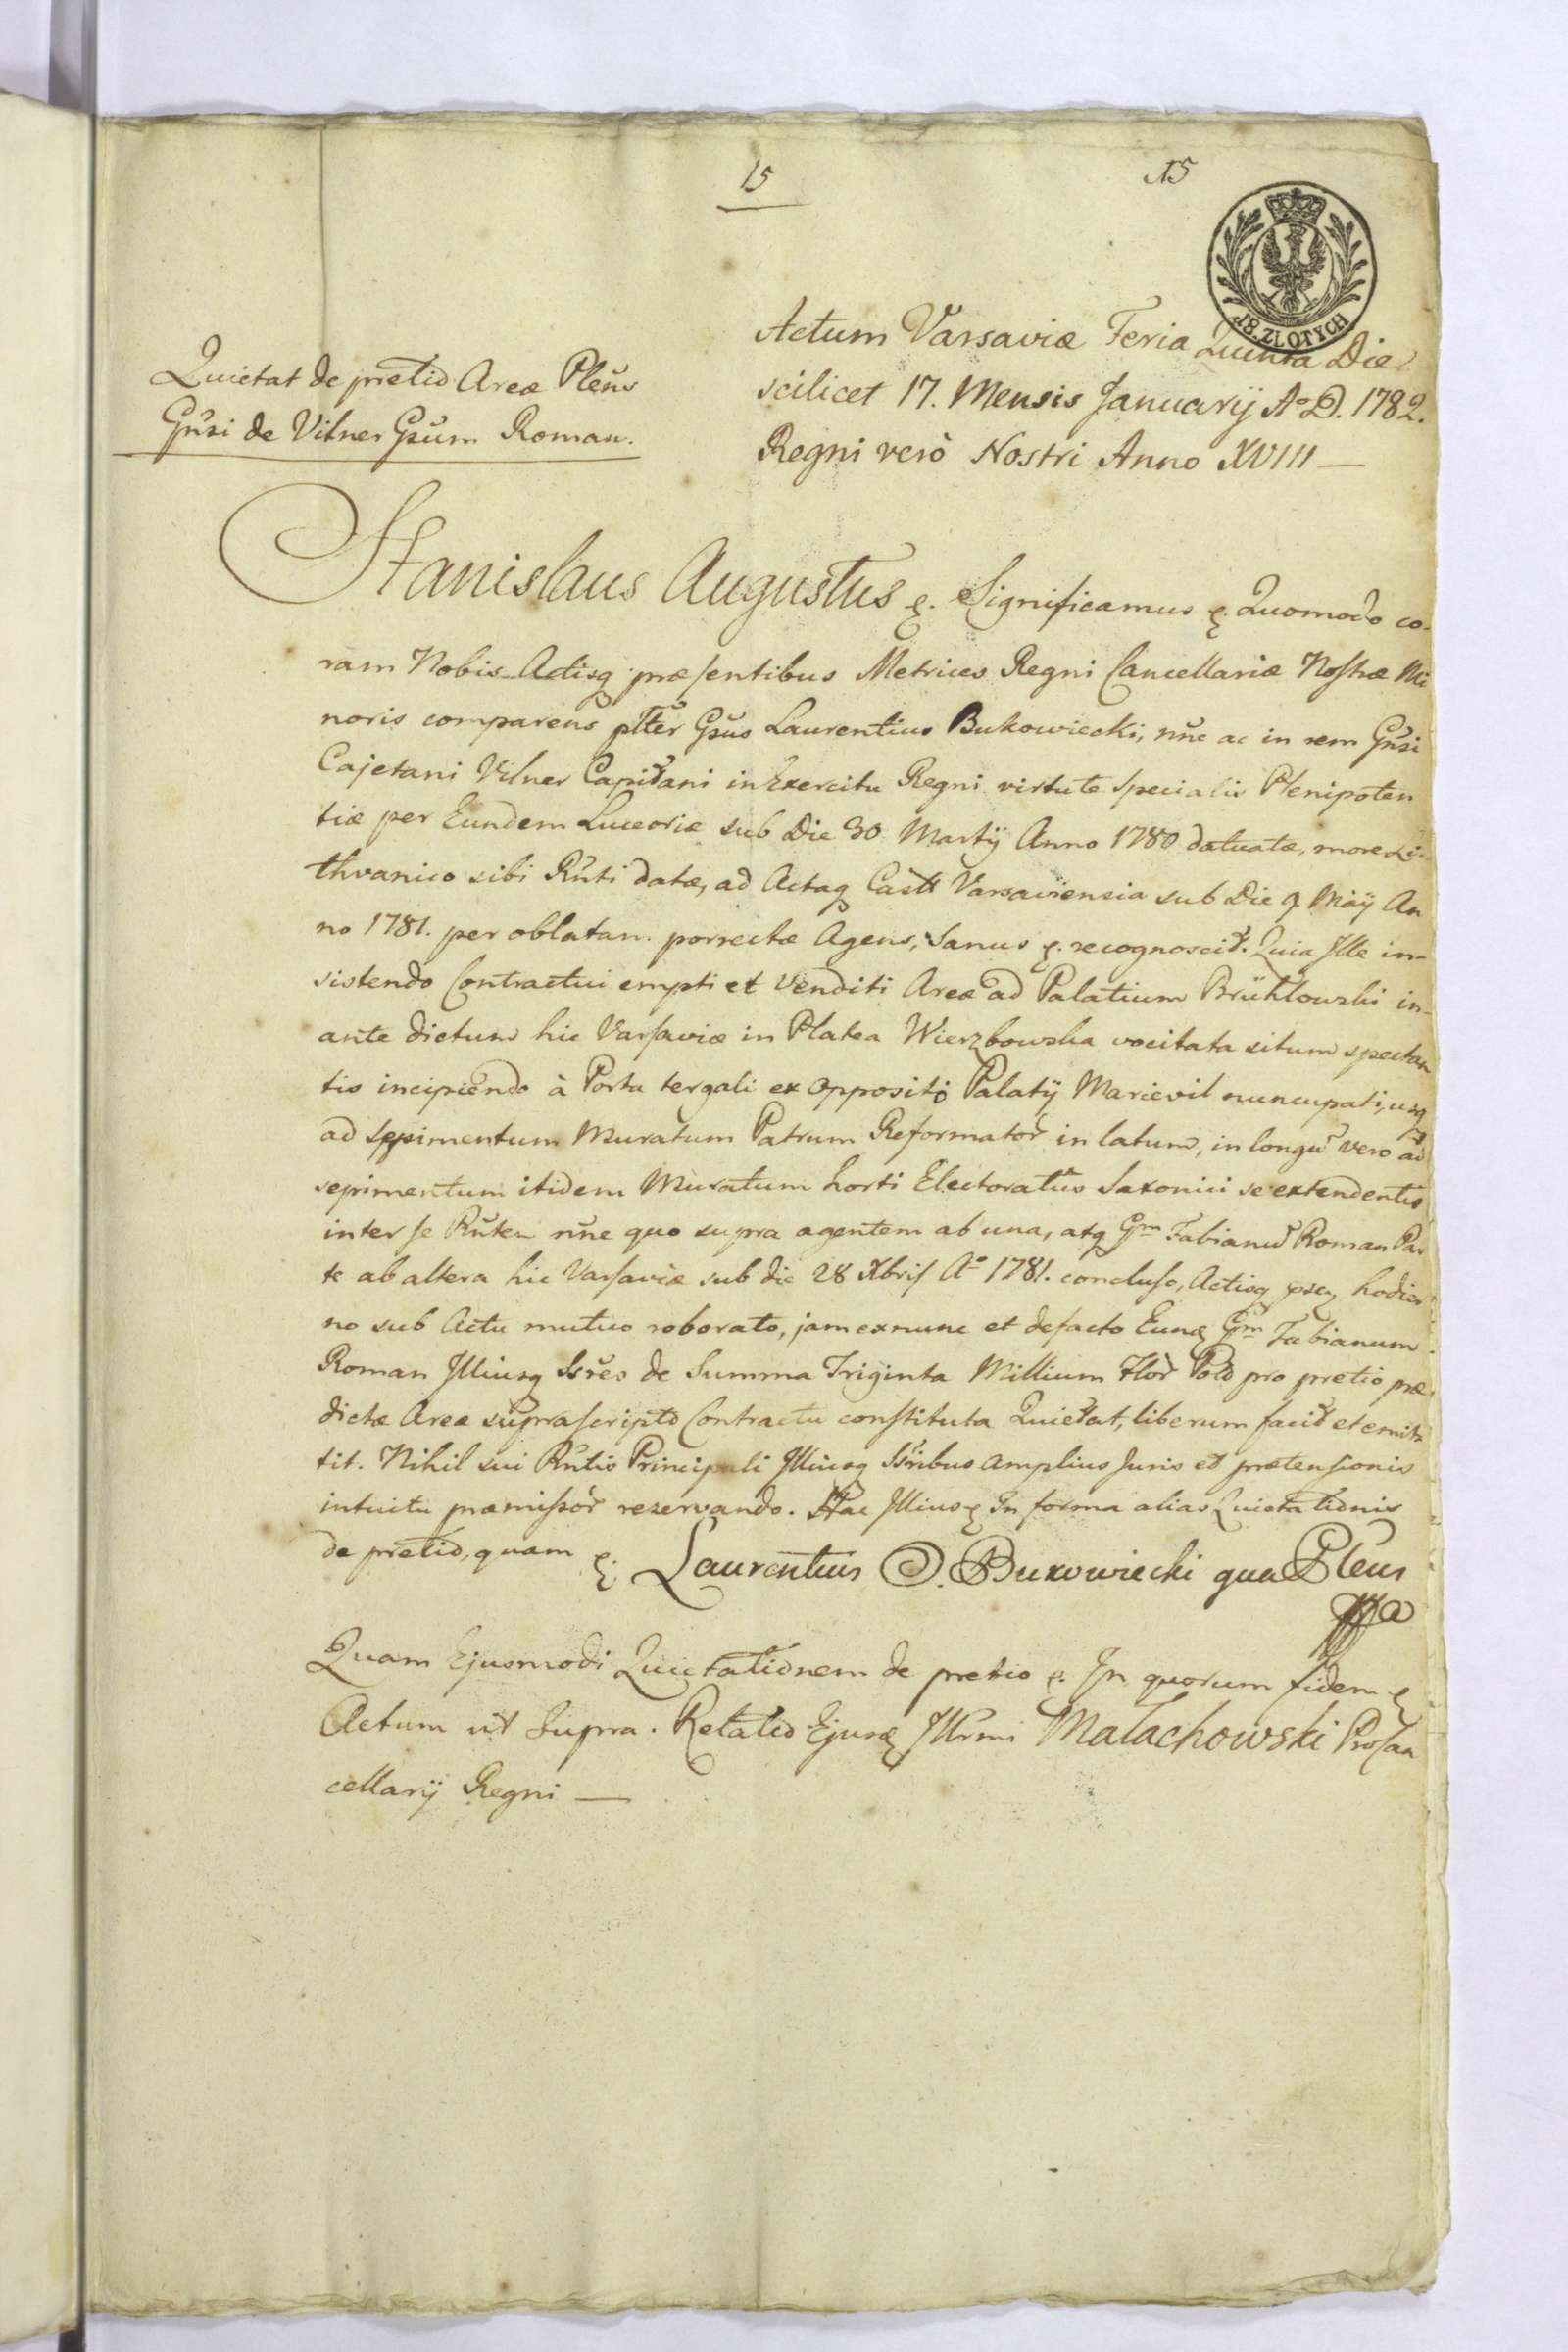 15
15
18. ZŁOTYCH
Actum Varsaviæ Feria Quinta Die
scilicet 17. Mensis Januarÿ Aº D. 1782.
Regni verò Nostri Anno XVIII —
Quietat de pretio Areæ Plenus
Gnsi de Vilner Gsum Roman.
Stanislaus Augustus ę. Significamus ę. Quomodo co-
ram Nobis Actisq præsentibus Metrices Regni Cancellariæ Nostræ Mi
noris comparens plter Gsus Laurentius Bukowiecki, nñe ac in rem Gnsi
Cajetani Vilner Capitani in Exercitu Regni virtute specialis Plenipoten
tiæ per Eundem Luceoriæ sub Die 30 Martÿ Anno 1780 datuatæ, more Li-
thvanico sibi Rñti datæ, ad Actaq Castt Varsaviensia sub Die 9 Maÿ An
no 1781. per oblatam porrectæ Agens, Sanus ę. recognoscit. Quia Ille in-
sistendo Contractui empti et venditi Areæ ad Palatium Brühlowski in-
ante dictum hic Varsaviæ in Platea Wierzbowska vocitata situm spectan
tis incipiendo à Porta tergali ex opposito Palatÿ Marievil nuncupati, usq
ad sepimentum Muratum Patrum Reformator in latum, in longu vero ad
sepimentum itidem Muratum horti Electoratus Saxonici se extendentis
inter se Rñtem nñe quo supra agentem ab una, atq Gm Fabianu Roman Par
te ab altera hic Varsaviæ sub die 28 Xbris Aº 1781. concluso, Actisq psq hodier
no sub Actu mutuo roborato, jam exnunc et defacto Eunq Gm Fabianum
Roman Illiusq Ssres de Summa Triginta Millium Flor Pol pro pretio præ
dictæ Areæ suprascripto Contractu constituta Quietat, liberum facit et emit
tit. Nihil sui Rñtis Principali Illiusq Ssribus amplius Juris et prætensionis
intuitu præmissor reservando. Hac Illius ę In forma alias Quietationis
de pretio, quam ę. Laurentius D. Bukowiecki qua Plenus
mppa
Quam Ejusmodi Quietationem de pretio ę. In quorum fidem ę
Actum ut Supra. Relatio Ejusq Illrmi Małachowski ProCan
cellarÿ Regni —